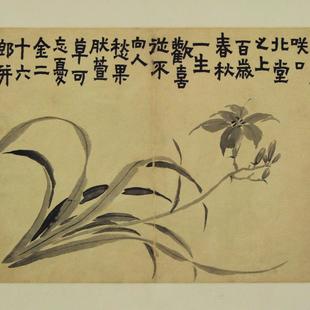 咲口
北堂
之上
百歲
春秋
一生
歡喜
從不
向人
愁果
肰萱
草可
忘憂
金二
十六
郎并